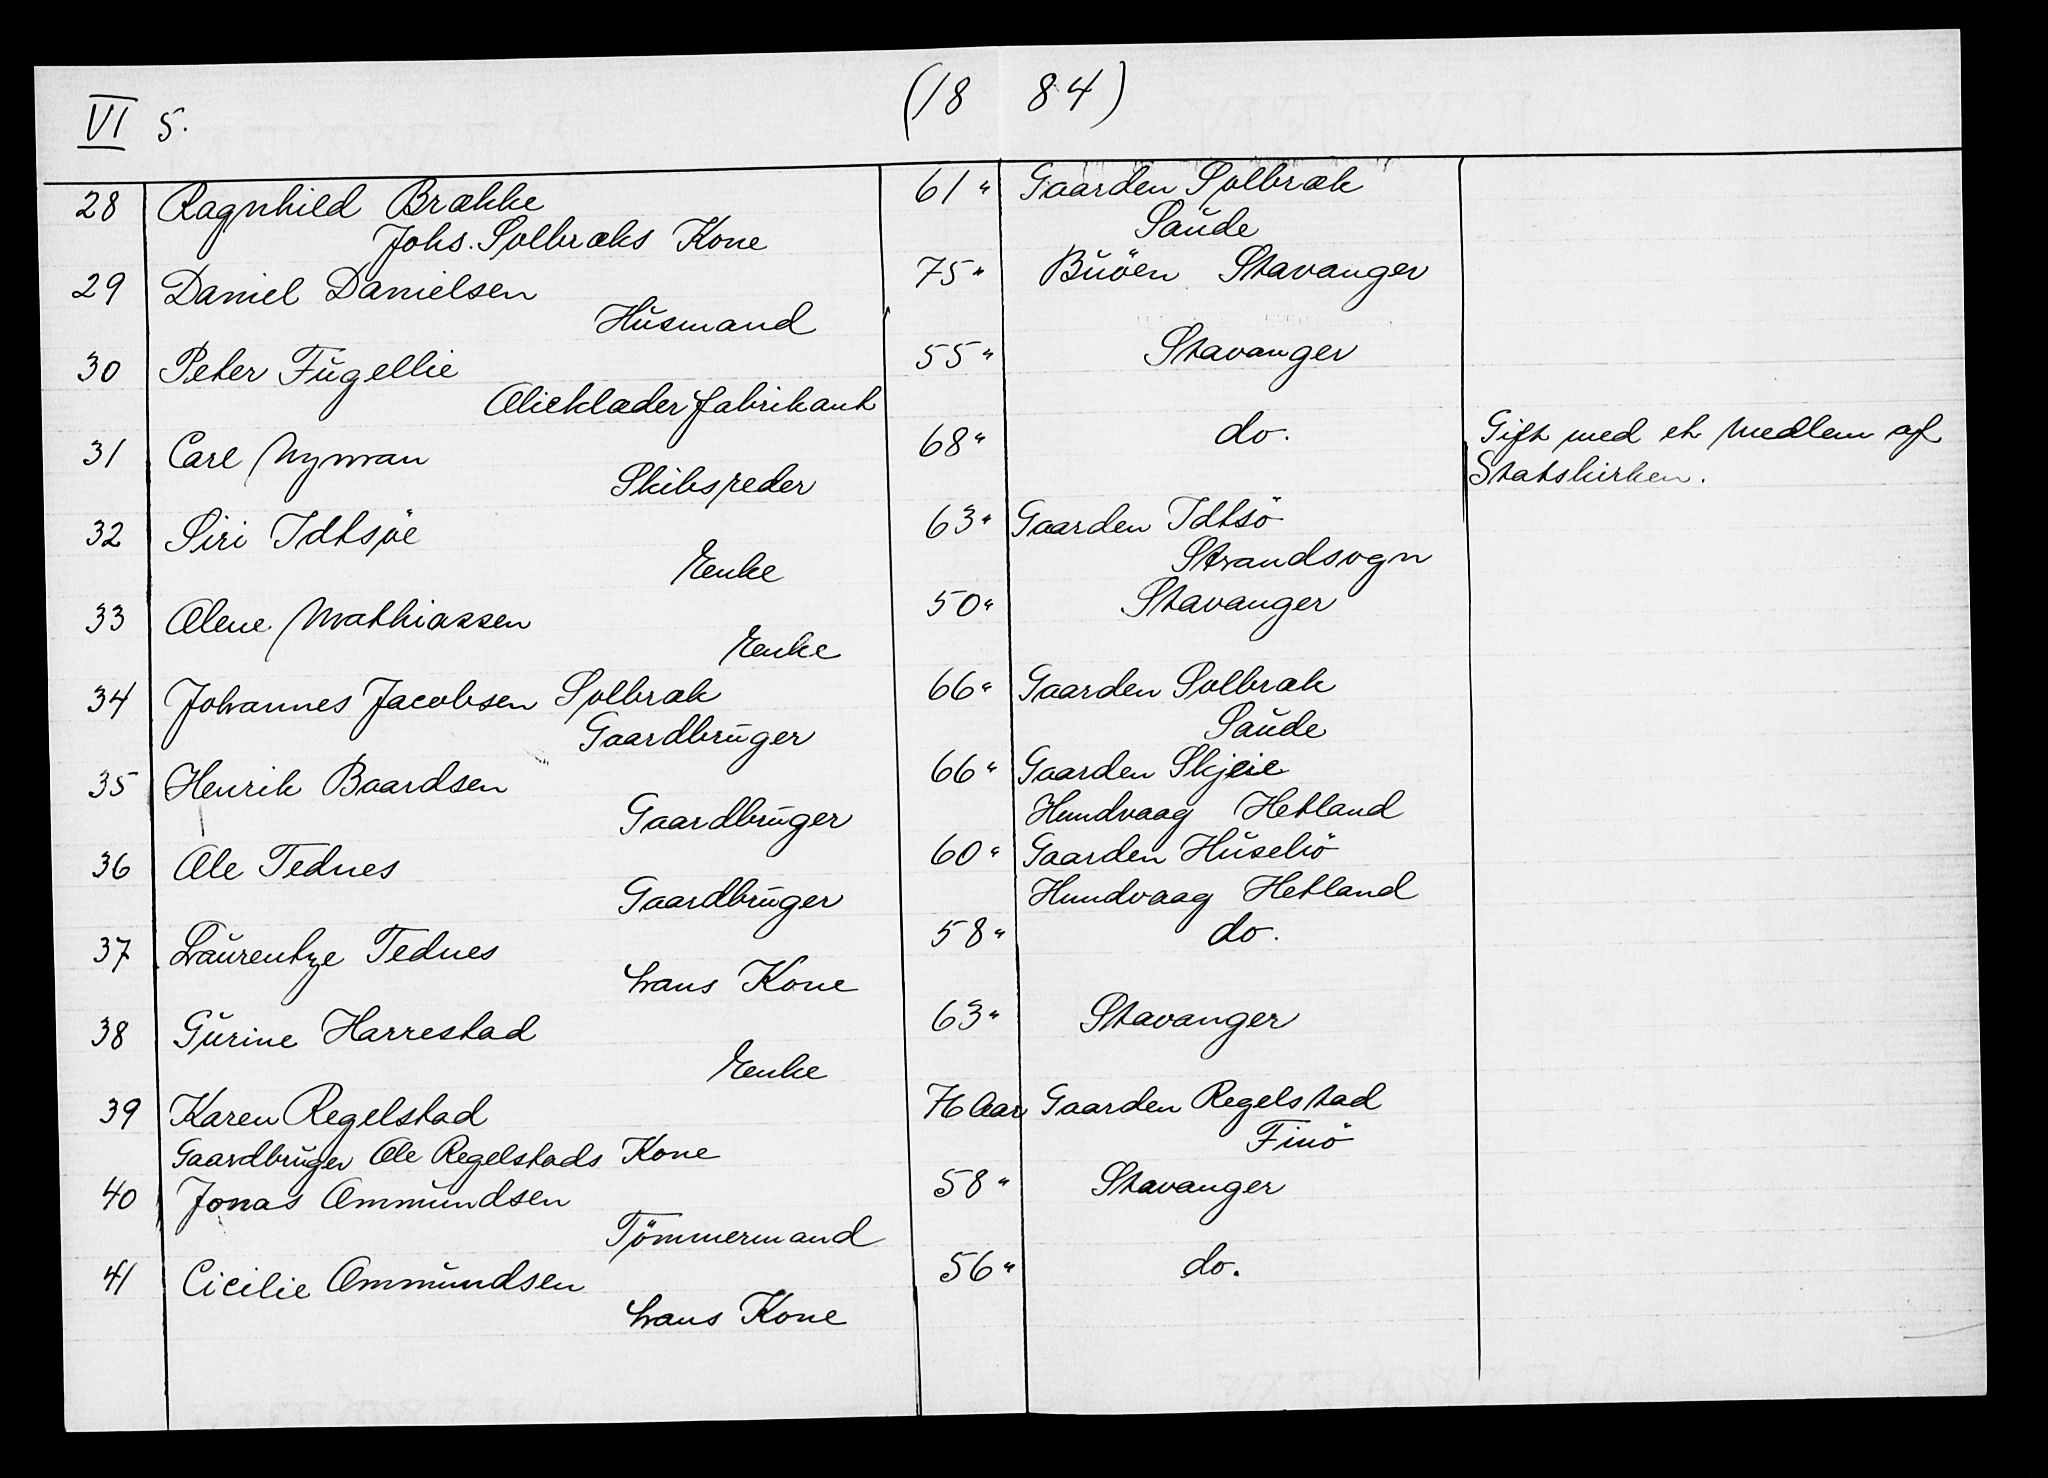 VI 5. (18 84)
28 Ragnhild Brække 61 " Gaarden Solbræk
Johs. Solbræks Kone Saude
29 Daniel Danielsen 75 " Buöen Stavanger
Husmand
30 Peter Fugellie 55 " Stavanger
Olieklæderfabrikant
31 Carl Nyman 68 " do. Gift med et Medlem af
Skibsreder Statskirken.
32 Siri Idtsöe 63 " Gaarden Idtsö
Enke Strandsogn
33 Olene Mathiassen 50 " Stavanger
Enke
34 Johannes Jacobsen Solbræk 66 " Gaarden Solbræk
Gaardbruger Saude
35 Henrik Baardsen 66 " Gaarden Skjeie
Gaardbruger Hundvaag Hetland
36 Ole Tednes 60 " Gaarden Husebö
Gaardbruger Hundvaag Hetland
37 Laurentze Tednes 58 " do.
hans Kone
38 Gurine Harrestad 63 " Stavanger
Enke
39 Karen Regelstad 76 Aar Gaarden Regelstad
Gaardbruger Ole Regelstads Kone Finö
40 Jonas Ommundsen 58 " Stavanger
Tömmermand
41 Cicilie Ommundsen 56 " do.
hans Kone